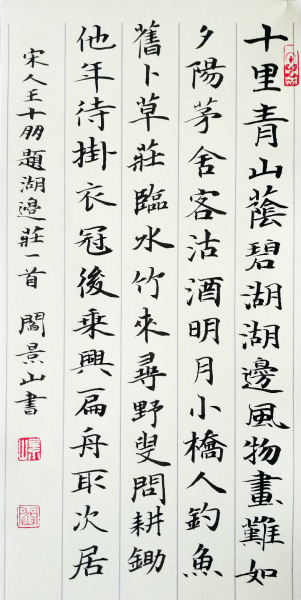 十里青山蔭碧湖湖邊風物畫難如
夕陽茅舍客沽酒明月小橋人釣魚
舊卜草莊臨水竹來尋野叟問耕鋤
他年待掛衣冠後乘興扁舟取次居
宋人王十朋題湖邊莊一首 閻景山書